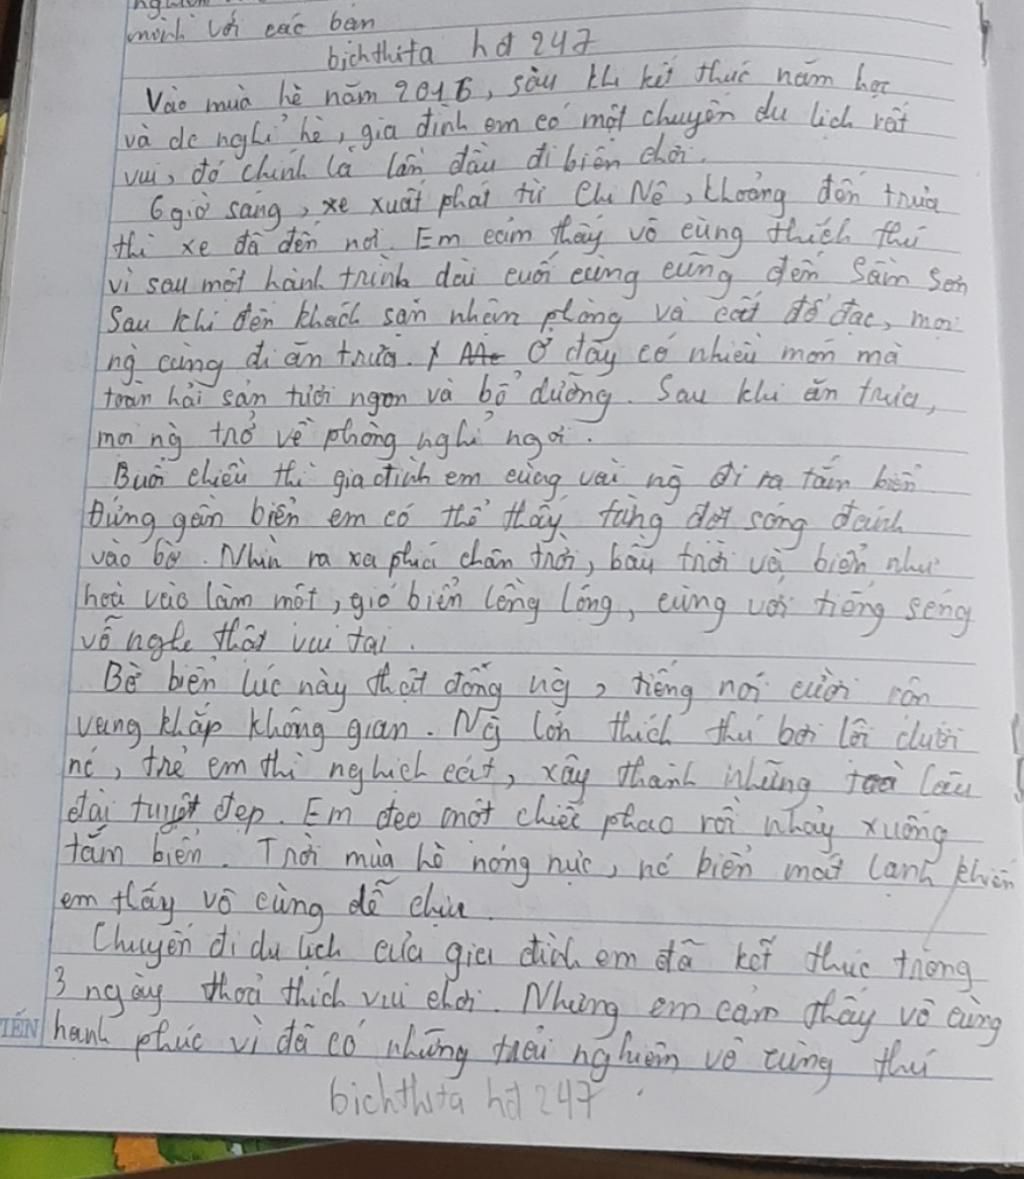 mình với các bạn
bichthita hđ 247
Vào mùa hè năm 2016, sau khi kết thúc năm học
và dc nghỉ hè, gia đình em có một chuyến du lịch rất
vui, đó chính là lần đầu đi biển chơi.
6 giờ sáng, xe xuất phát từ Chi Nê, khoảng đến trưa
thì xe đã đến nơi. Em cảm thấy vô cùng thích thú
vì sau một hành trình dài cuối cùng cũng đến Sầm Sơn
Sau khi đến khách sạn nhận phòng và cất đồ đạc, mọi
ng cùng đi ăn trưa. Ở đây có nhiều món mà
toàn hải sản tươi ngon và bổ dưỡng. Sau khi ăn trưa,
mọi ng trở về phòng nghỉ ngơi.
Buổi chiều thì gia đình em cùng vài ng đi ra tắm biển
Đứng gần biển em có thể thấy từng đợt sóng đánh
vào bờ. Nhìn ra xa phía chân trời, bầu trời và biển như
hoà vào làm một, gió biển lồng lộng, cùng với tiếng sóng
vỗ nghe thật vui tai.
Bờ biển lúc này thật đông ng, tiếng nói cười rôn
vang khắp không gian. Ng lớn thích thú bơi lội dưới
nc, trẻ em thì nghịch cát, xây thành những toà lâu
đài tuyệt đẹp. Em đeo một chiếc phao rồi nhảy xuống
tắm biển. Trời mùa hè nóng nực, nc biển mát lạnh khiến
em thấy vô cùng dễ chịu.
Chuyến đi du lịch của gia đình em đã kết thúc trong
3 ngày thoả thích vui chơi. Nhưng em cảm thấy vô cùng
hạnh phúc vì đã có những trải nghiệm vô cùng thú
bichthita hđ 247